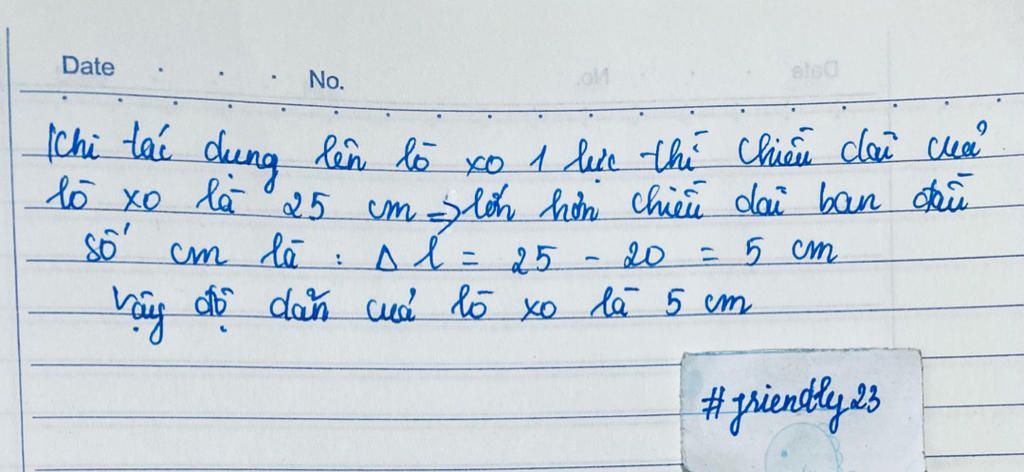 Date . . . No.
Khi tác dụng lên lò xo 1 lực thì chiều dài của
lò xo là 25 cm => lớn hơn chiều dài ban đầu
số cm là : Δl = 25 - 20 = 5 cm
Vậy độ dãn của lò xo là 5 cm
#friendly23